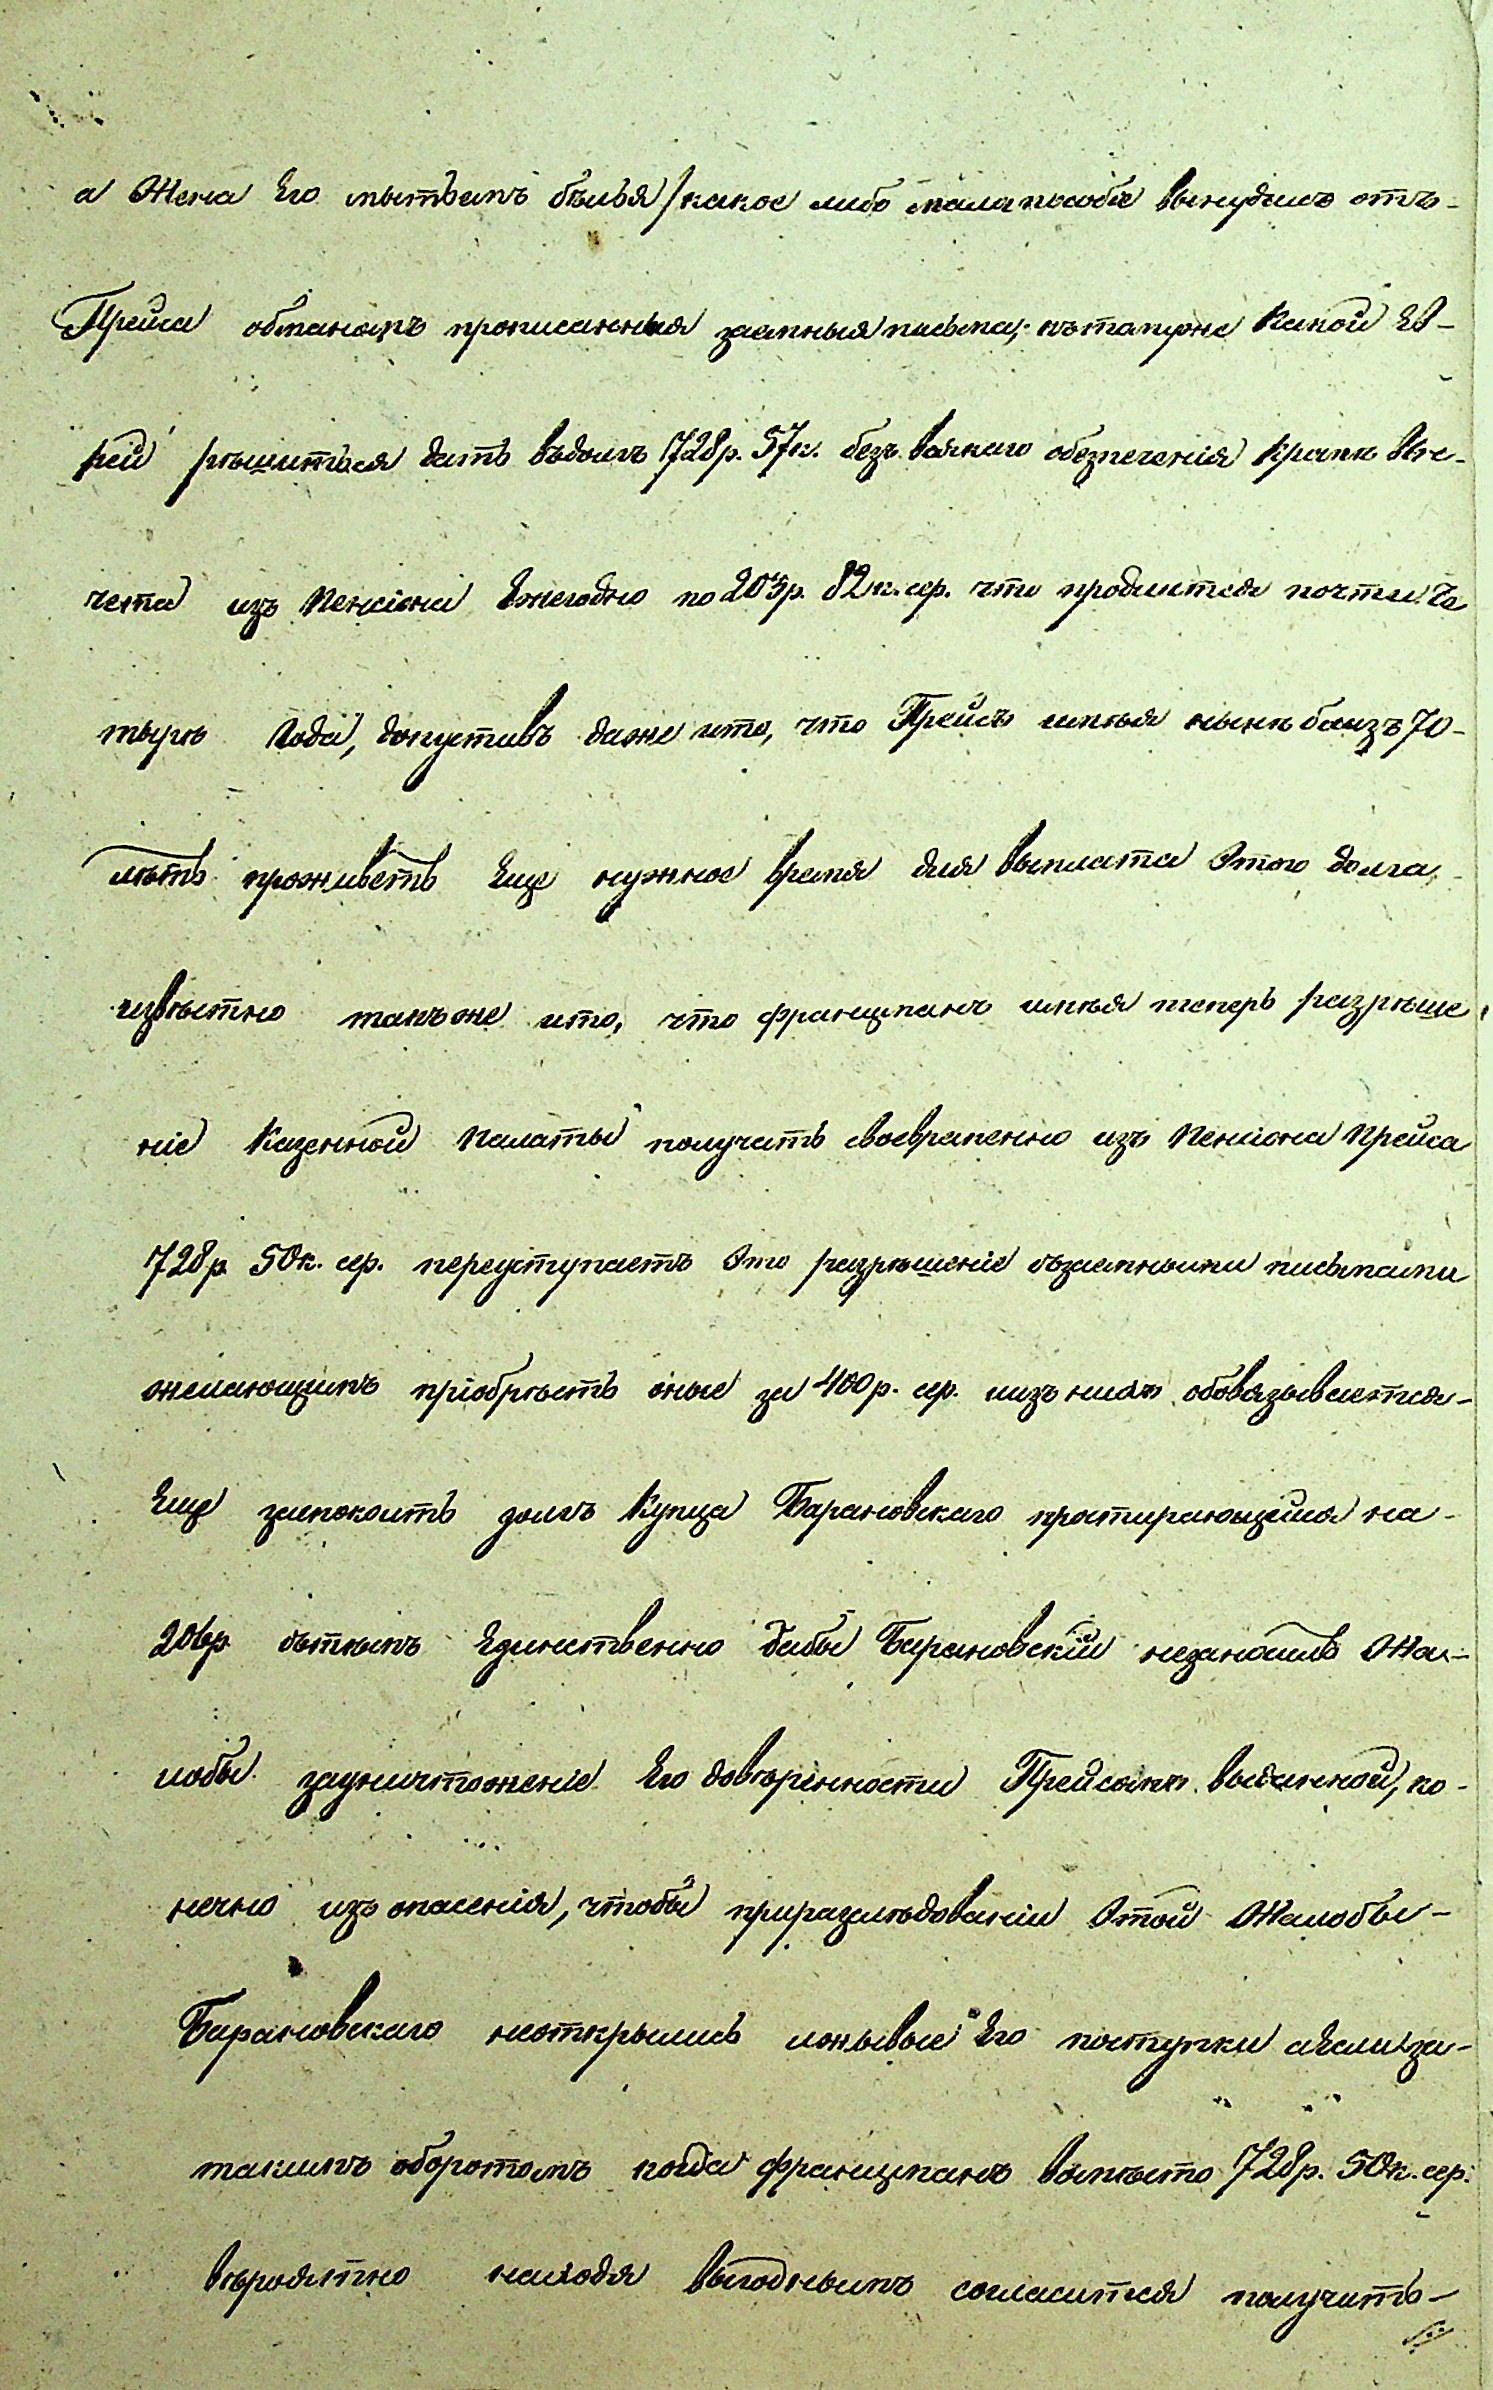 а Жена Его мытьемъ бѣлья/какое либо мала пособіе вынудилъ отъ-
Прейса обманомъ прописанныя заемныя письма; къ томуже Какой Ев-
рей рѣшиться дать въдолгъ 728р. 57к. безъ всякаго обезпеченія Кромѣ вы-
чета изъ Пенсіони Ежегодно по 203р. 82к. сер. что продлится почти Че
тыре Года, допустивъ даже ито, что Прейсъ имѣя нынѣ близъ 70-
лѣтъ проживетъ Еще нужное время для выплата Этого долга,
извѣстно такъ же ито, что Францманъ имѣя теперь разрѣше
ніе Казенной Палаты получать своевременно изъ Пенсіона Прейса
728р 50к. сер. переуступаетъ Это разрѣшеніе съзаемными письмами
желающимъ пріобрѣсть оные за 400р. сер. иизъ нихъ обовязывается-
Еще запокоить долгъ Купца Барановскаго простирающейся на-
206р. сътѣмъ Единственно дабы Барановскій незаносилъ Жа-
лобы зауничтоженіе Его довѣренности Прейсомъ выданной, ко-
нечно изъ опасенія, чтобы приразслѣдованіи Этой Жалобы-
Барановскаго неоткрылись Его поступки аЕсли за-
такимъ оборотомъ когда Францманъ вмѣсто 728р. 50к. сер.
вѣроятно находя выгоднымъ согласится получить-